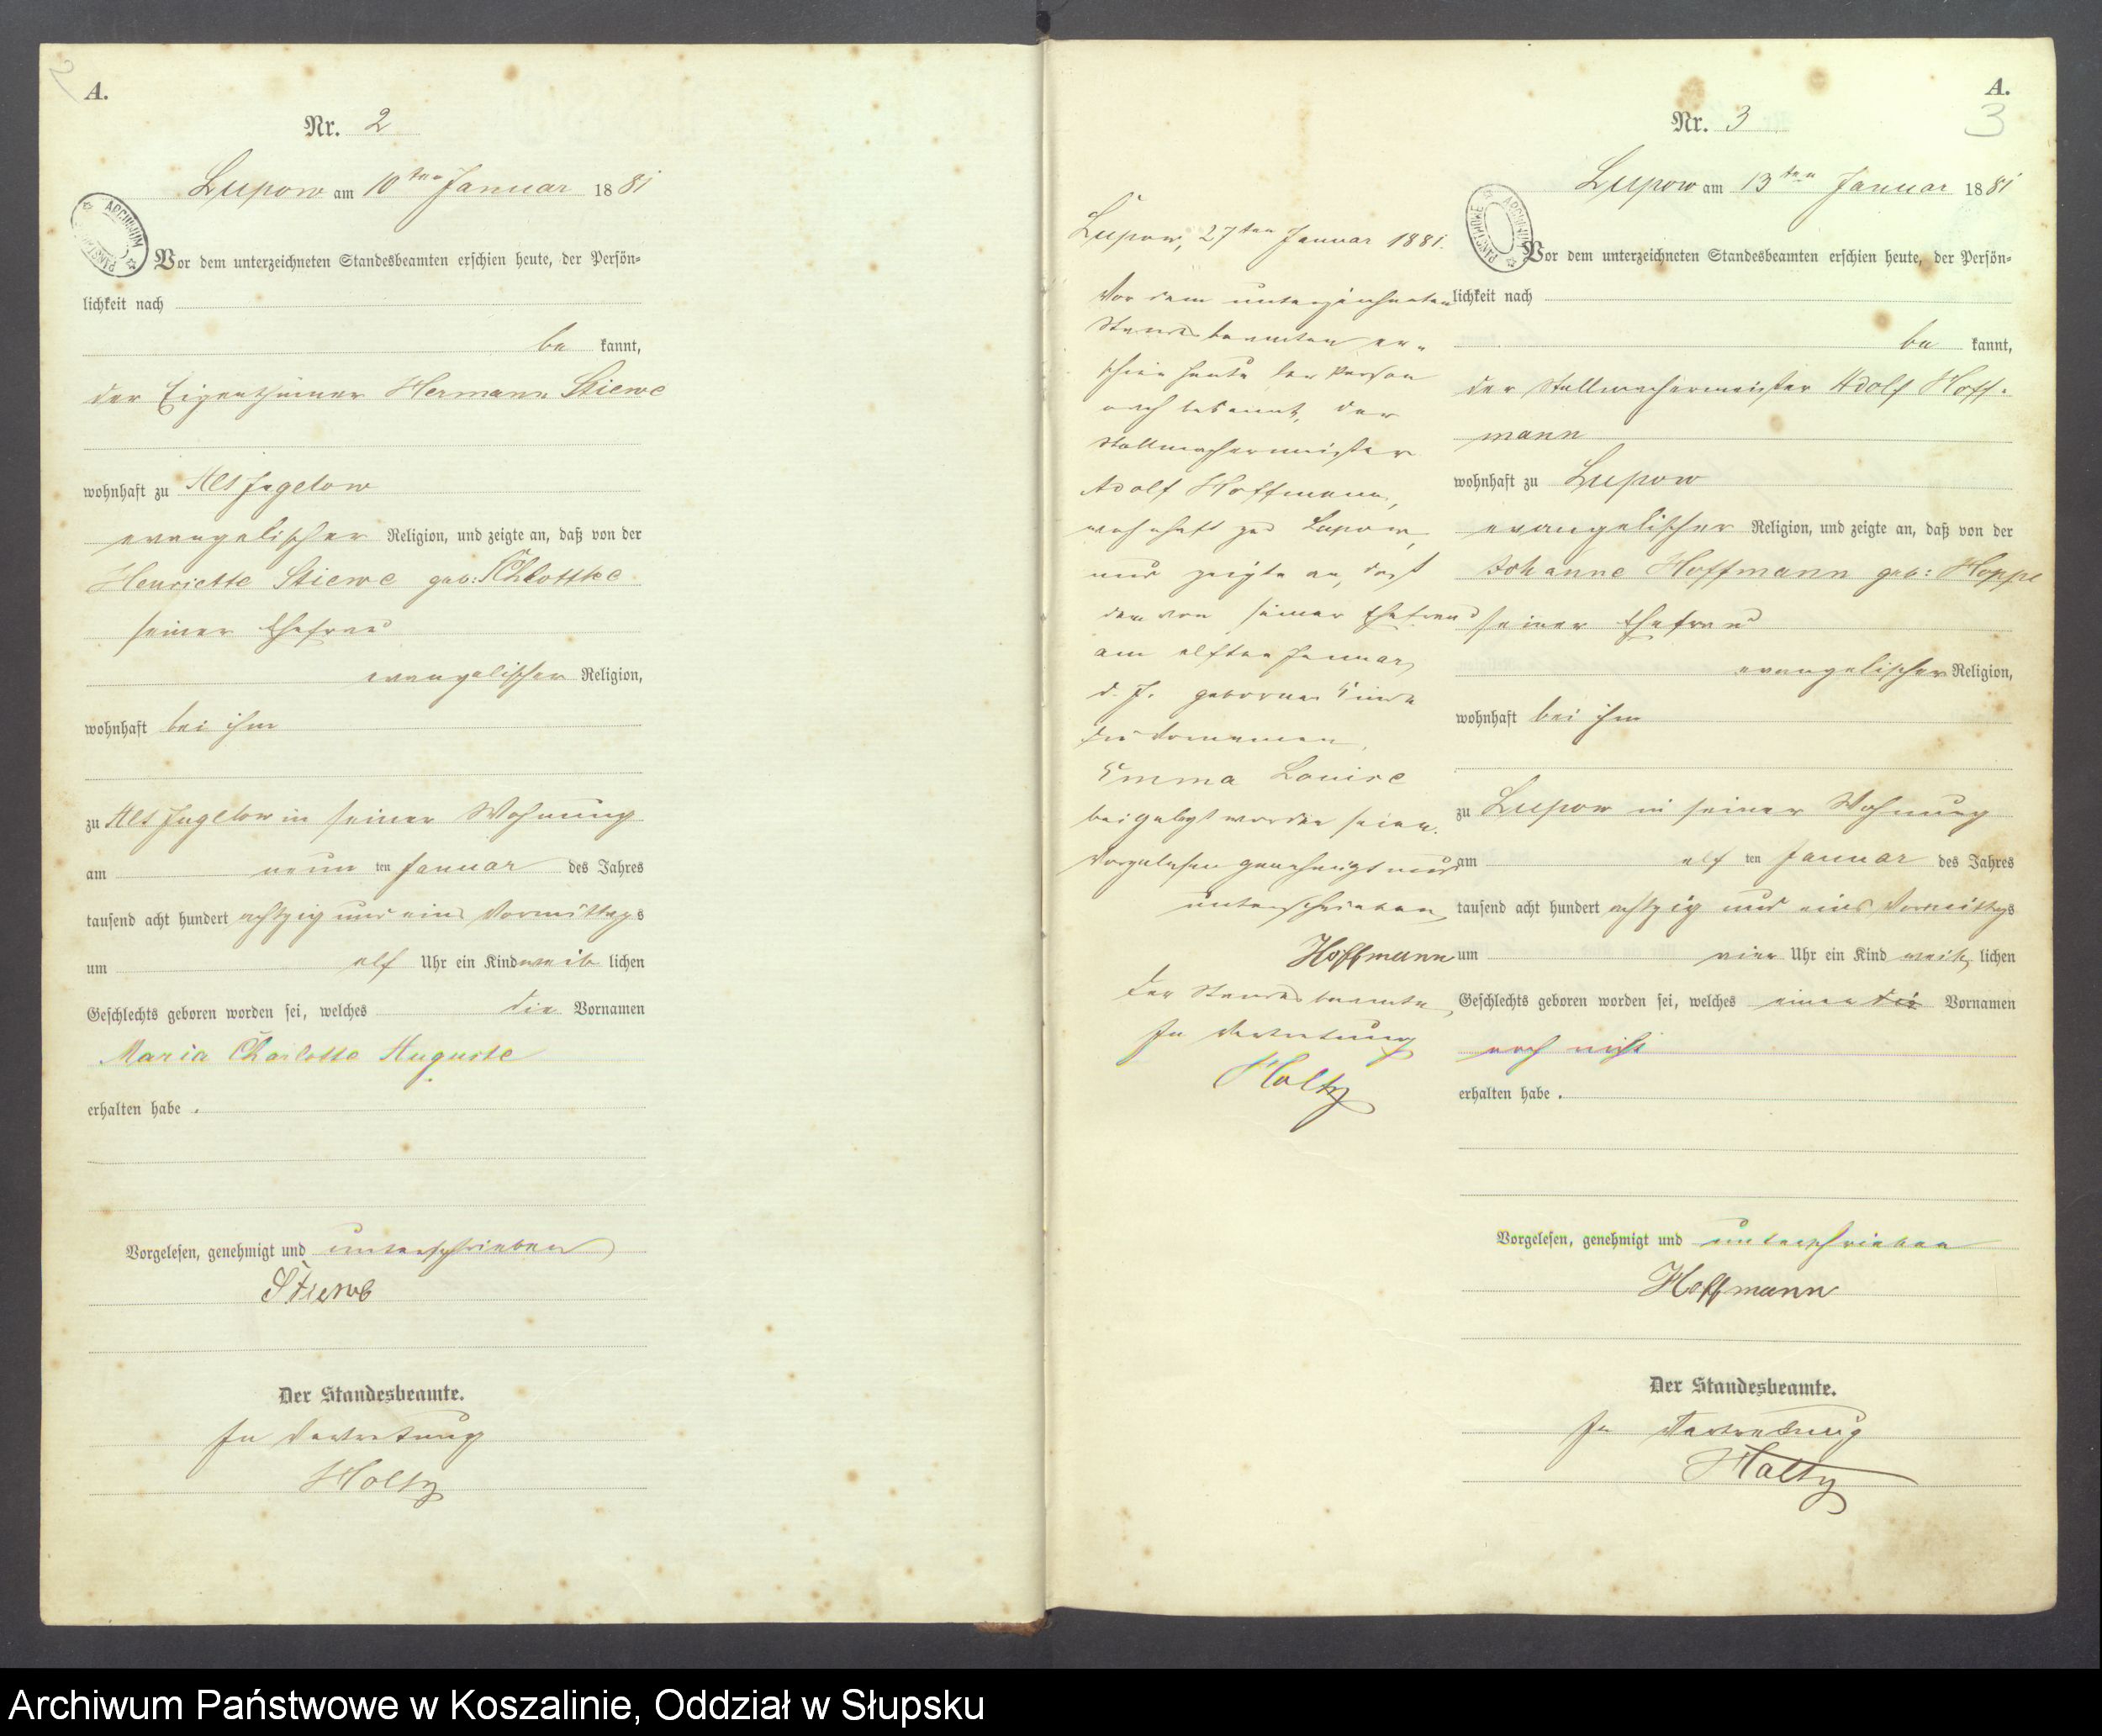 2
A.
Nr. 2
Lupow am 10ten Januar 1881
ARCHIWUM PAŃSTWOWE
Vor dem unterzeichneten Standesbeamten erschien heute, der Persön-
lichkeit nach
be kannt,
der Eigenthümer Hermann Stiewe
wohnhaft zu Alt Jugelow
evangelischer Religion, und zeigte an, daß von der
Henriette Stiewe geb: Chlottke
seiner Ehefrau
evangelischer Religion,
wohnhaft bei ihm
zu Alt Jugelow in seiner Wohnung
am neun ten Januar des Jahres
tausend acht hundert achtzig und eins Vormittags
um elf Uhr ein Kind weib lichen
Geschlechts geboren worden sei, welches die Vornamen
Maria Charlotte Auguste
erhalten habe .
Vorgelesen, genehmigt und unterschrieben
Stiewe
Der Standesbeamte.
In Vertretung
Holtz
Lupow, 27ten Januar 1881.
Vor dem unterzeichneten
Standesbeamten er-
schien heute der Person
nach bekannt, der
Stellmachermeister
Adolf Hoffmann,
wohnhaft zu Lupow,
und zeigte an, daß
dem von seiner Ehefrau
am elften Januar
d. J. geborenen Kinde
die Vornamen
Emma Louise
beigelegt worden seien.
Vorgelesen genehmigt und
unterschrieben
Hoffmann
Der Standesbeamte
In Vertretung
Holtz
A.
3
Nr. 3
Lupow am 13ten Januar 1881
ARCHIWUM PAŃSTWOWE
Vor dem unterzeichneten Standesbeamten erschien heute, der Persön-
lichkeit nach
be kannt,
der Stellmachermeister Adolf Hoff-
mann
wohnhaft zu Lupow
evangelischer Religion, und zeigte an, daß von der
Johanne Hoffmann geb: Hoppe
seiner Ehefrau
evangelischer Religion,
wohnhaft bei ihm
zu Lupow in seiner Wohnung
am elf ten Januar des Jahres
tausend acht hundert achtzig und eins Vormittags
um vier Uhr ein Kind weib lichen
Geschlechts geboren worden sei, welches einen die Vornamen
noch nicht
erhalten habe .
Vorgelesen, genehmigt und unterschrieben
Hoffmann
Der Standesbeamte.
In Vertretung
Holtz
Archiwum Państwowe w Koszalinie, Oddział w Słupsku